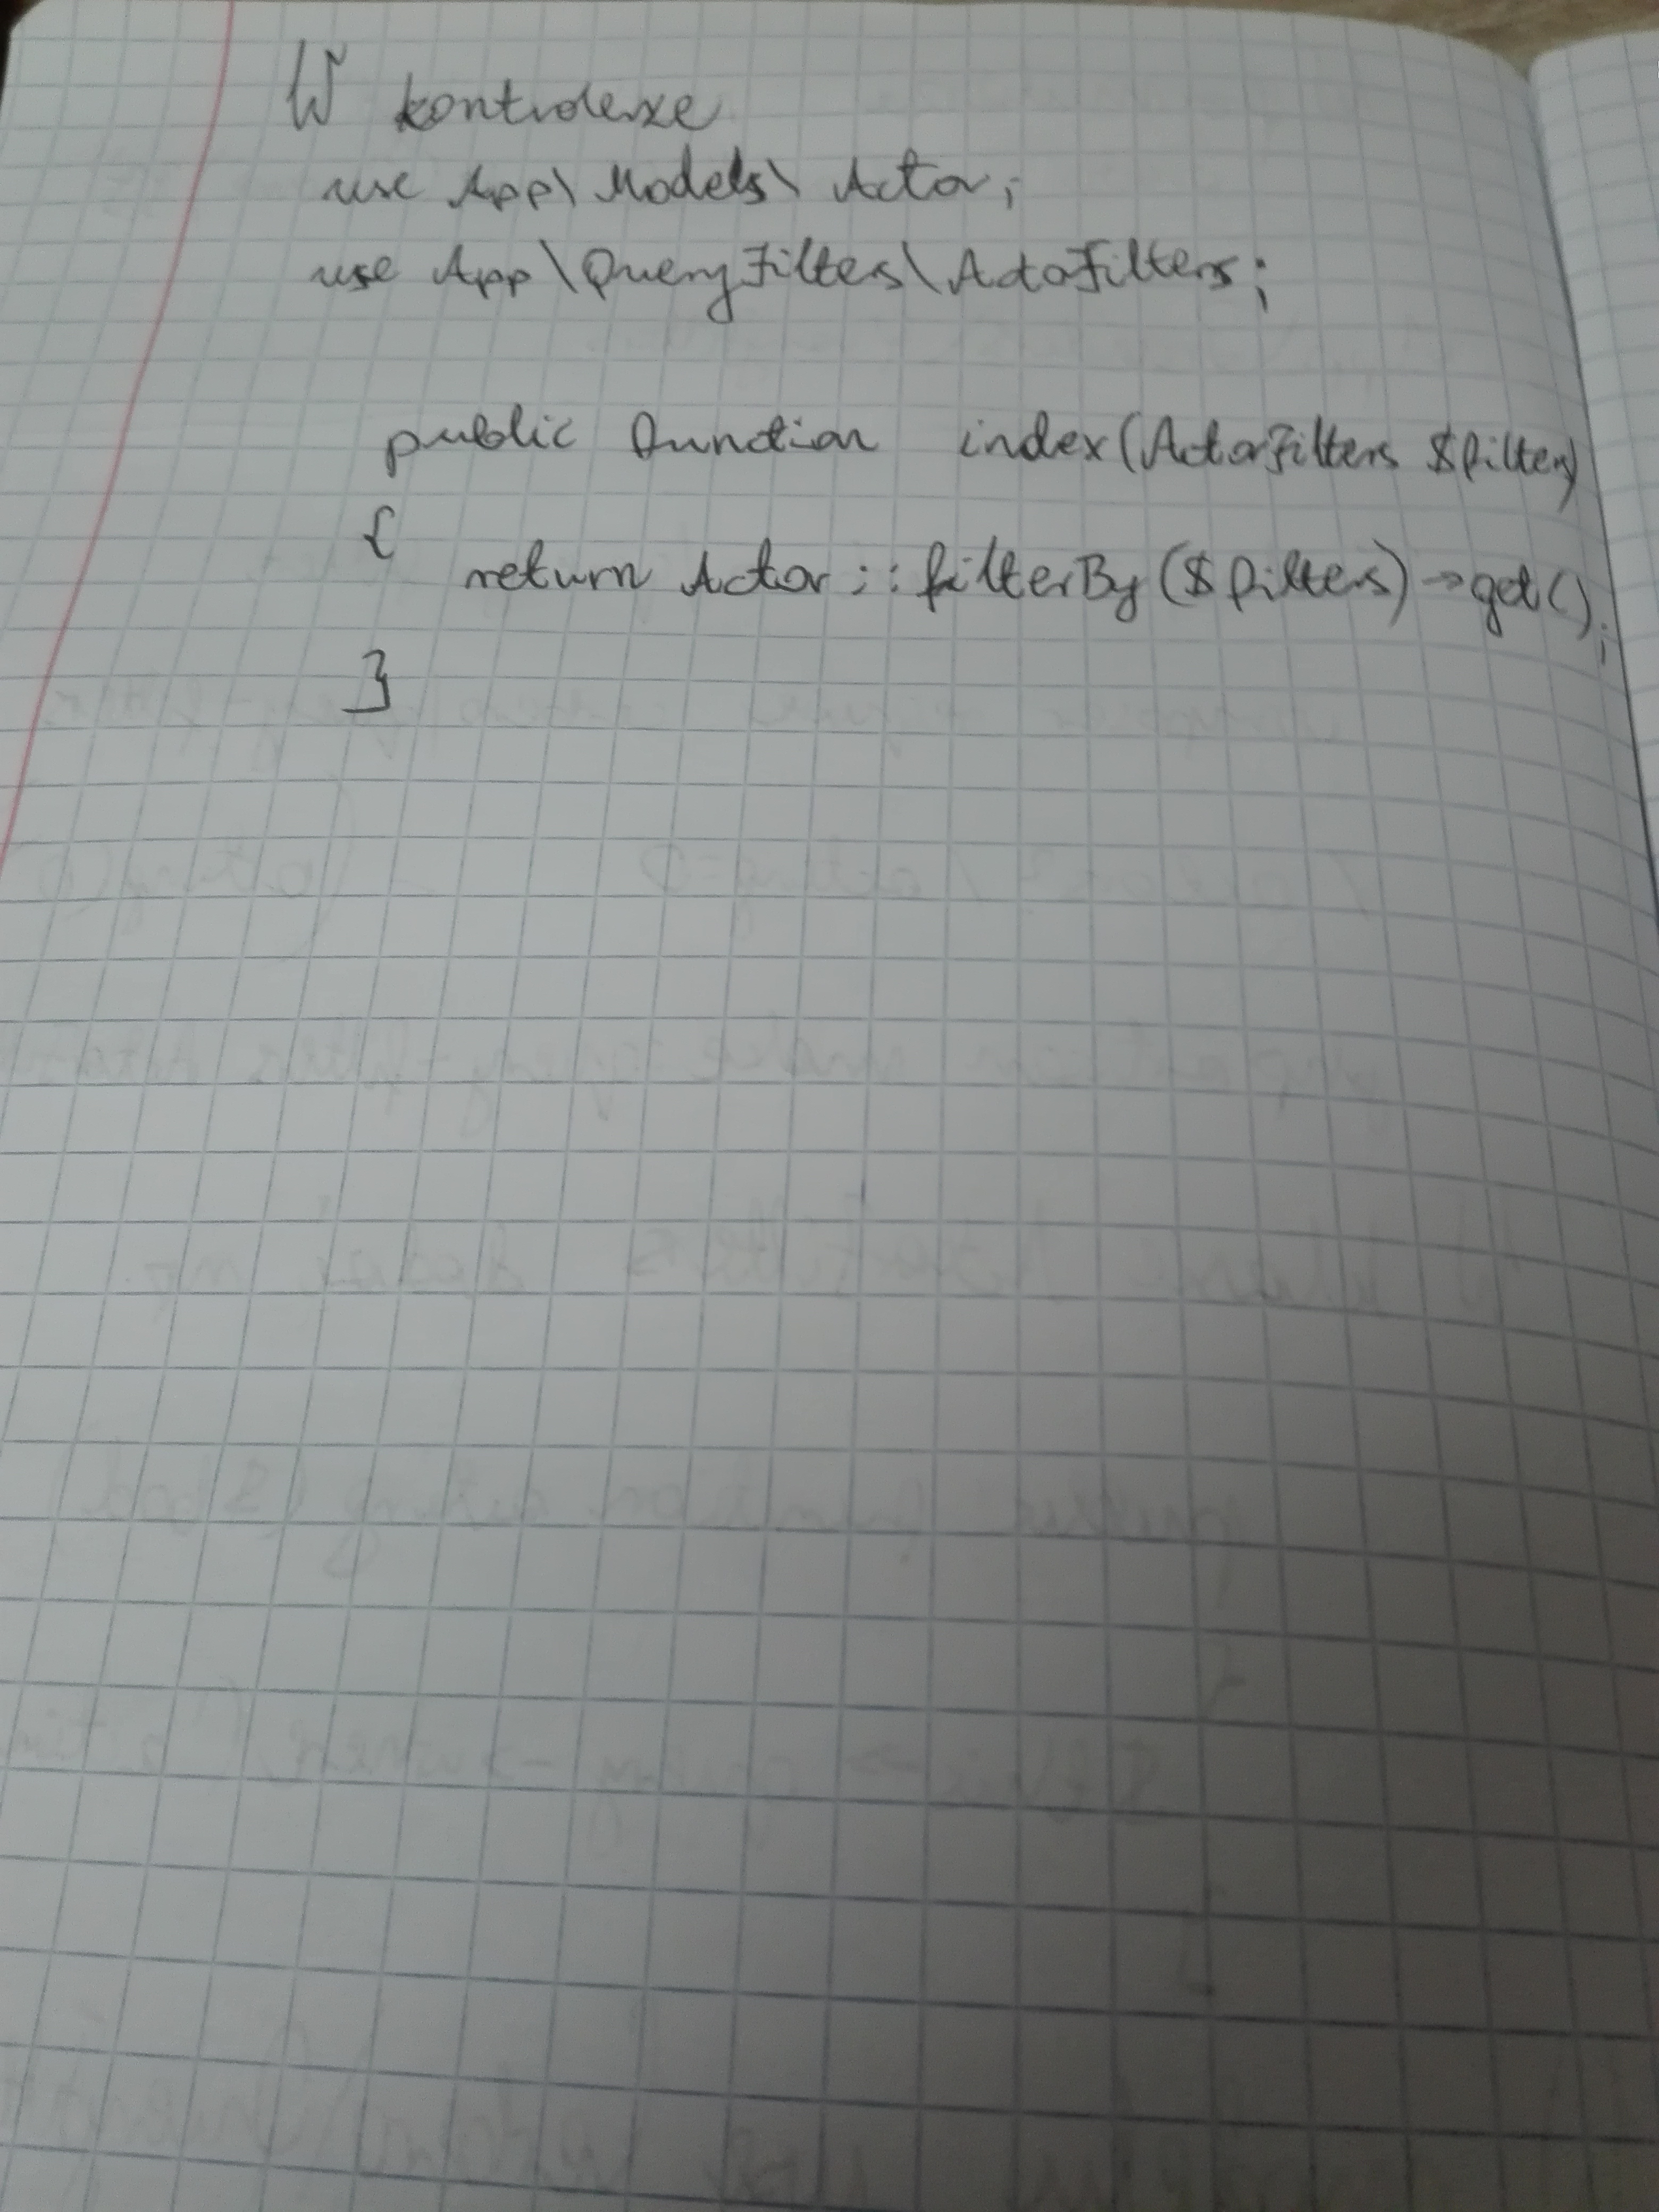 W kontrolerze
use App\Models\Actor;
use App\QueryFilters\ActorFilters;
public function index(ActorFilters $filters)
{
return Actor::filterBy($filters)->get();
}